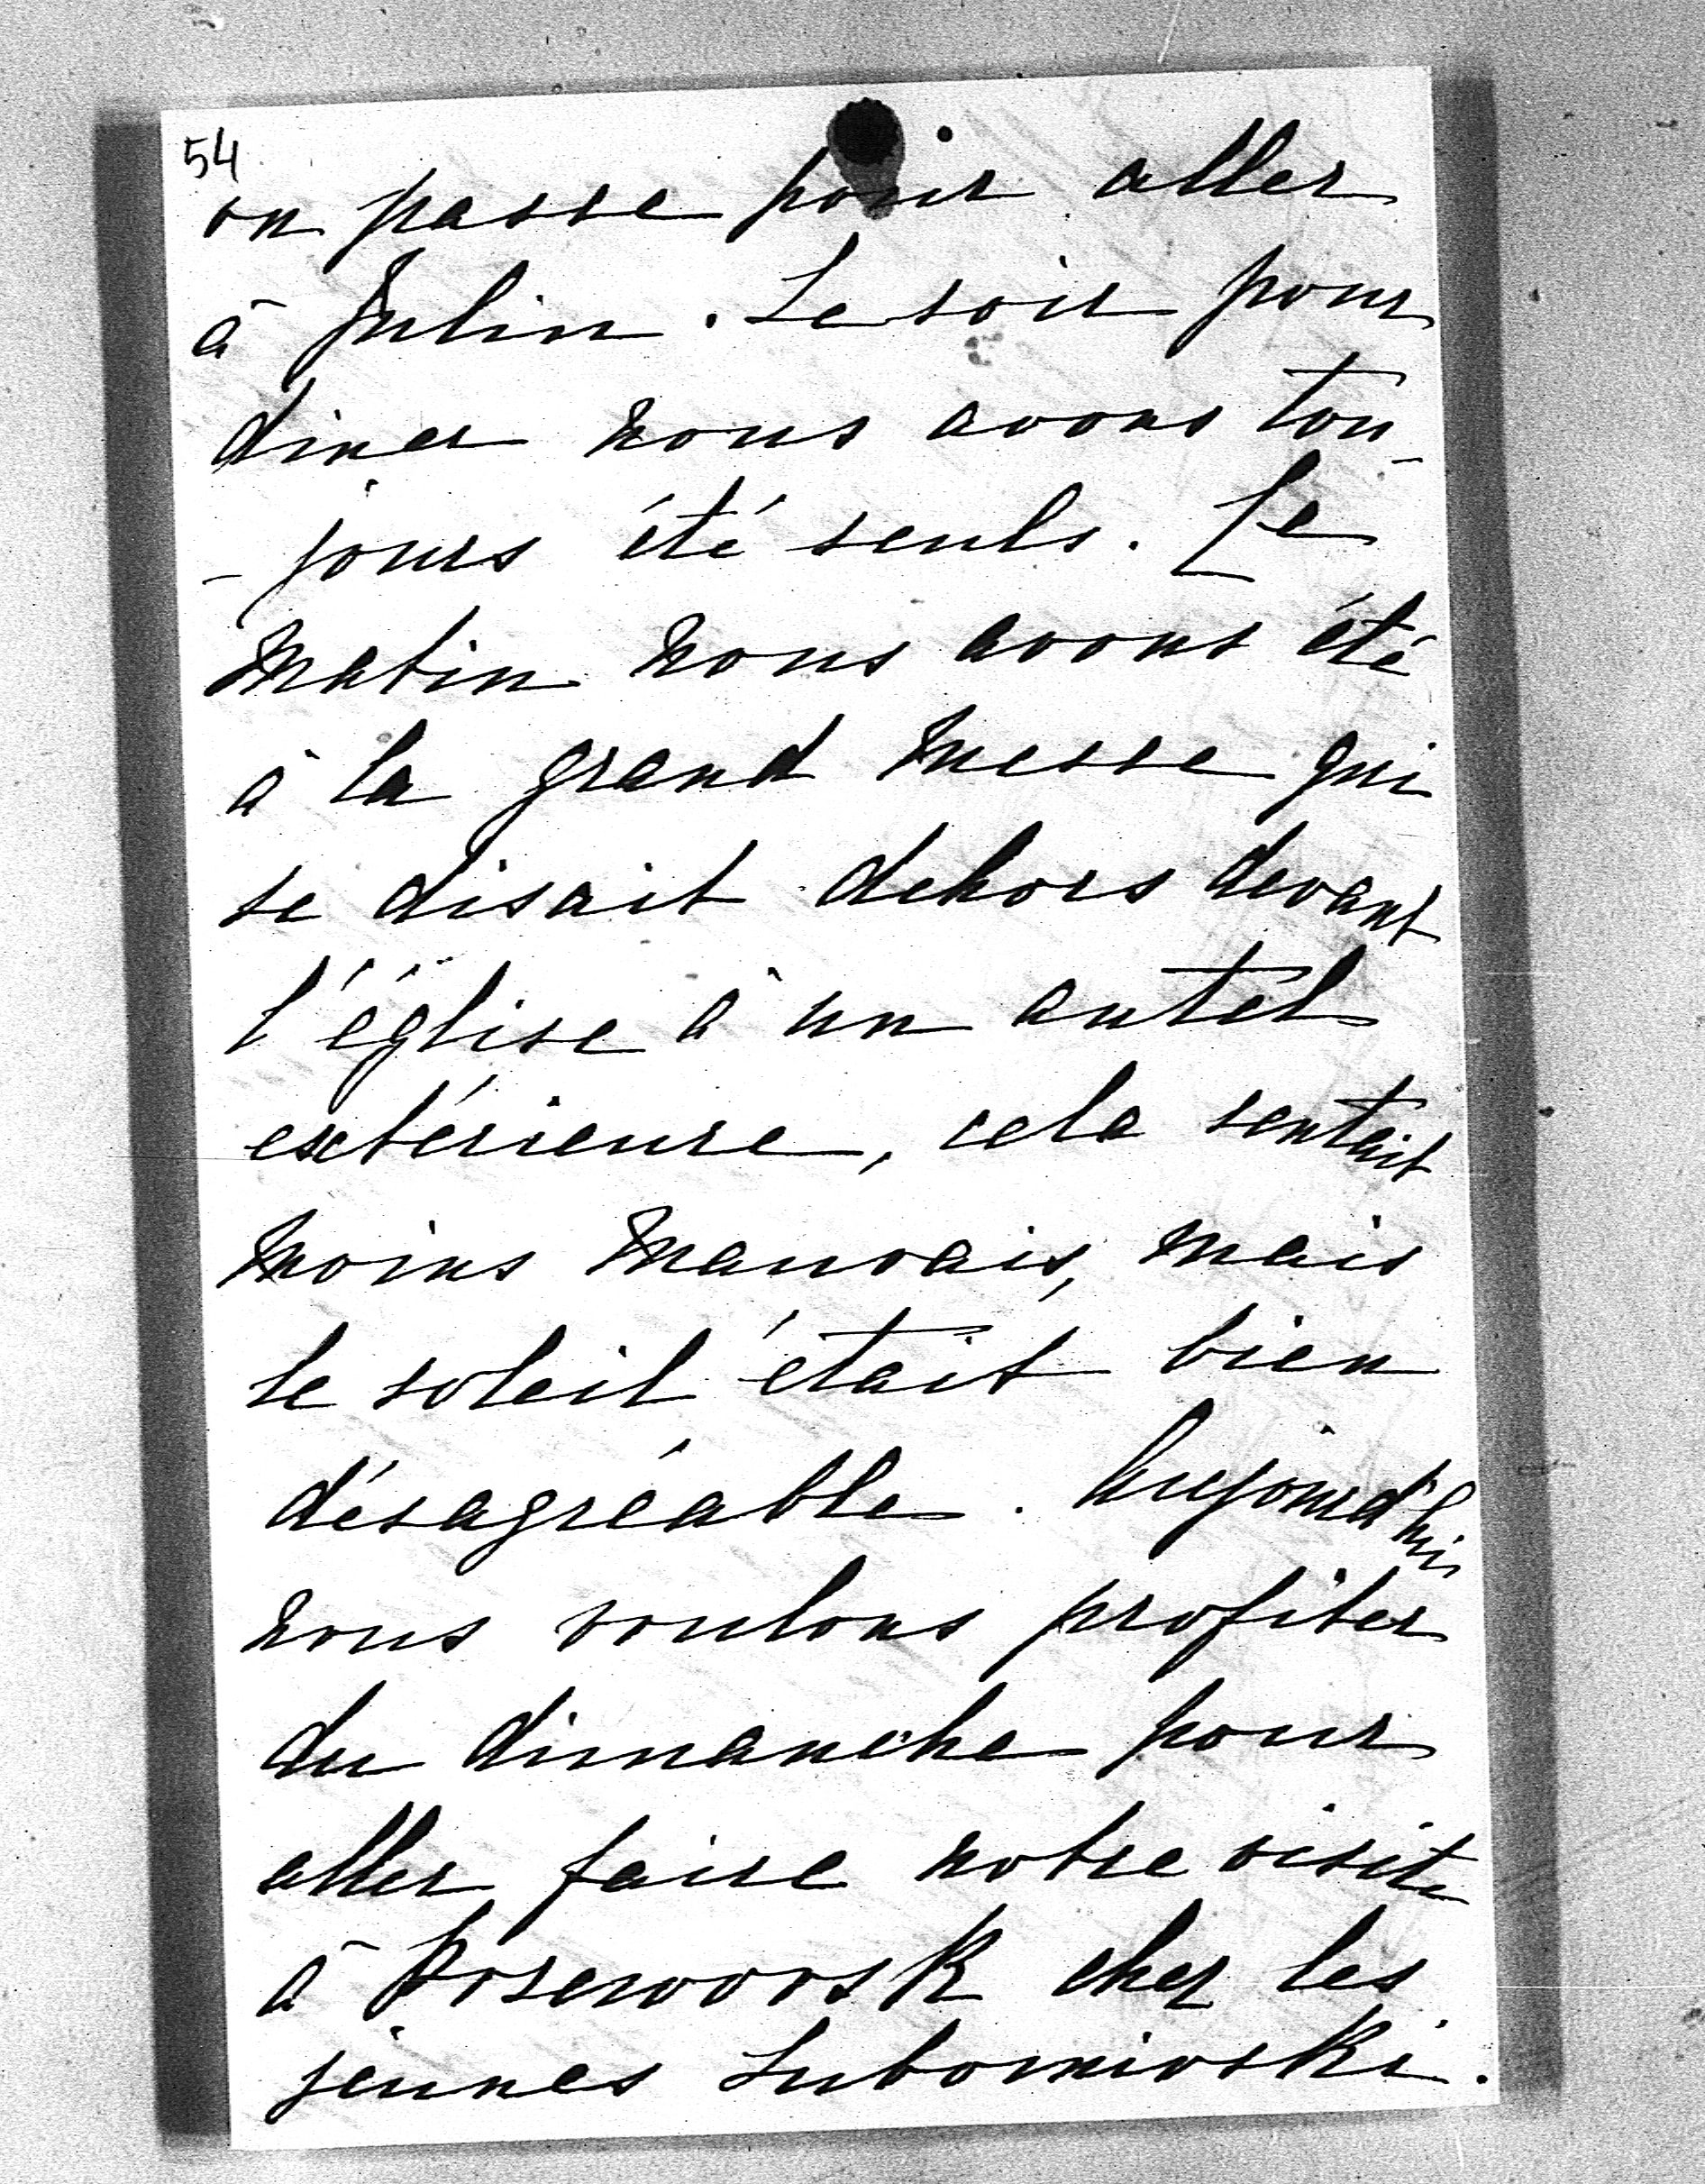 54
on passe pour aller
à Julin. Le soir pour
diner nous avons tou-
-jours été seuls. Le
matin nous avons été
à la grand messe qui
se disait dehors devant
l'église à un autel
extérieure, cela sentait
moins mauvais, mais
le soleil était bien
désagréable. Aujourd'hui
nous voulons profiter
du dimanche pour
aller faire notre visite
à chez les
jeunes Lubomirski.